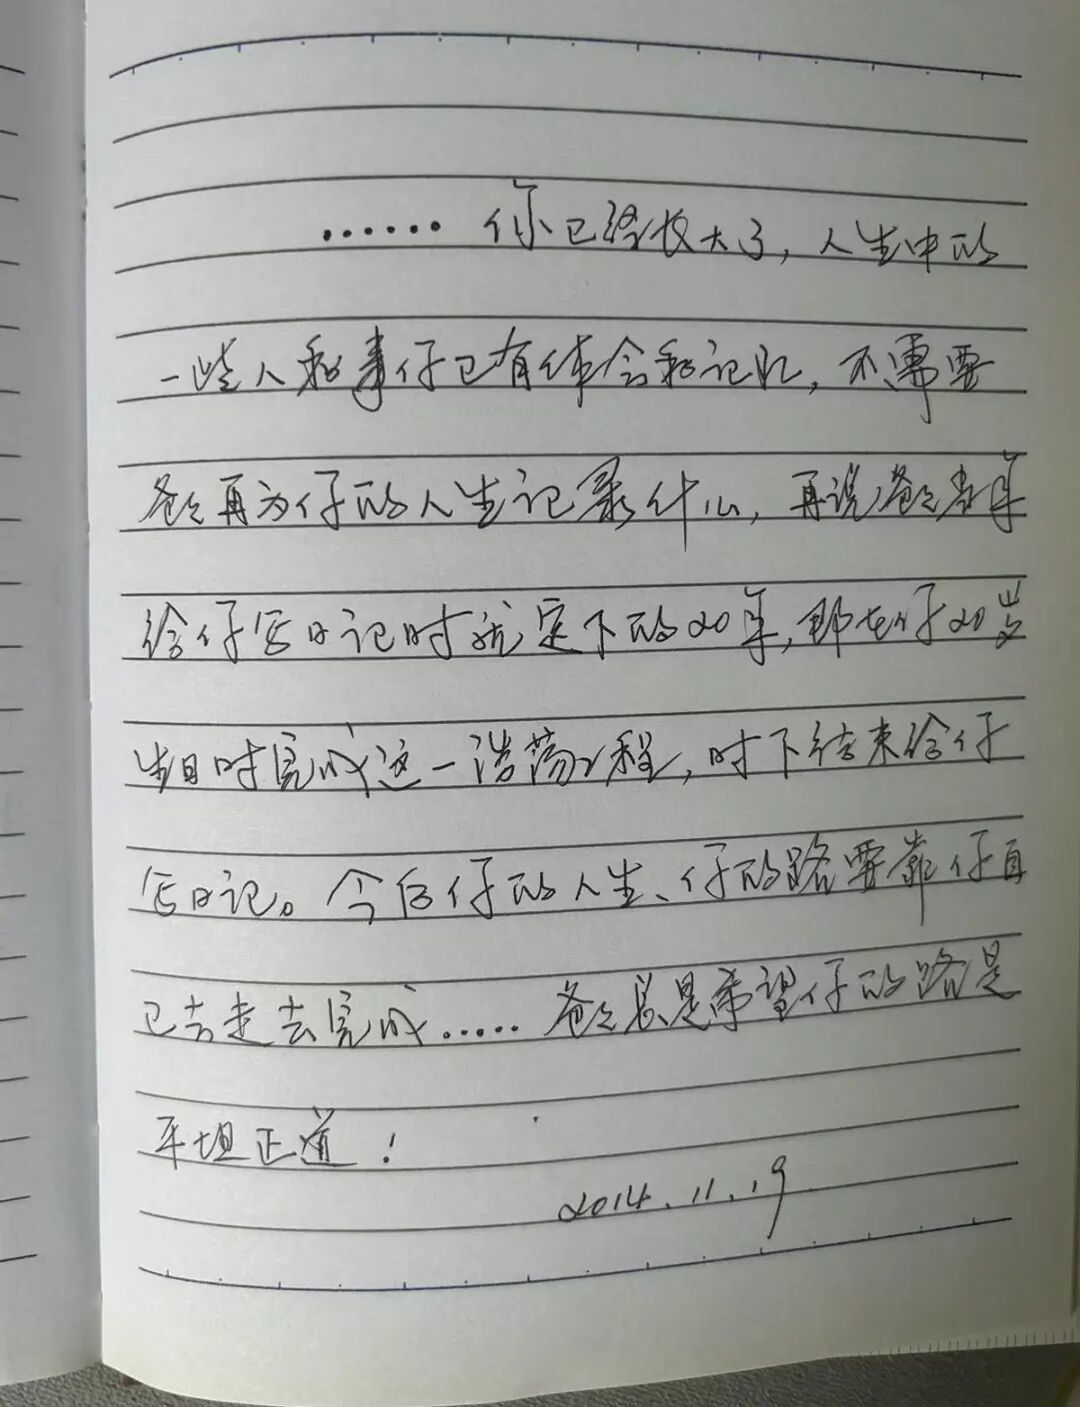 ……你已经长大了，人生中的
一些人和事仔已有体会和记忆，不需要
爸爸再为仔的人生记录什么，再说爸爸当年
给仔写日记时就定下的20年，那在仔20岁
生日时完成这一浩荡工程，时下结束给仔
写日记。今后仔的人生、仔的路要靠仔自
己去走去完成……爸爸总是希望仔的路是
平坦正道！
2014.11.19